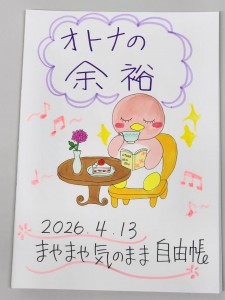 オトナの
余裕
2026.4.13
まやまや気のまま自由帳